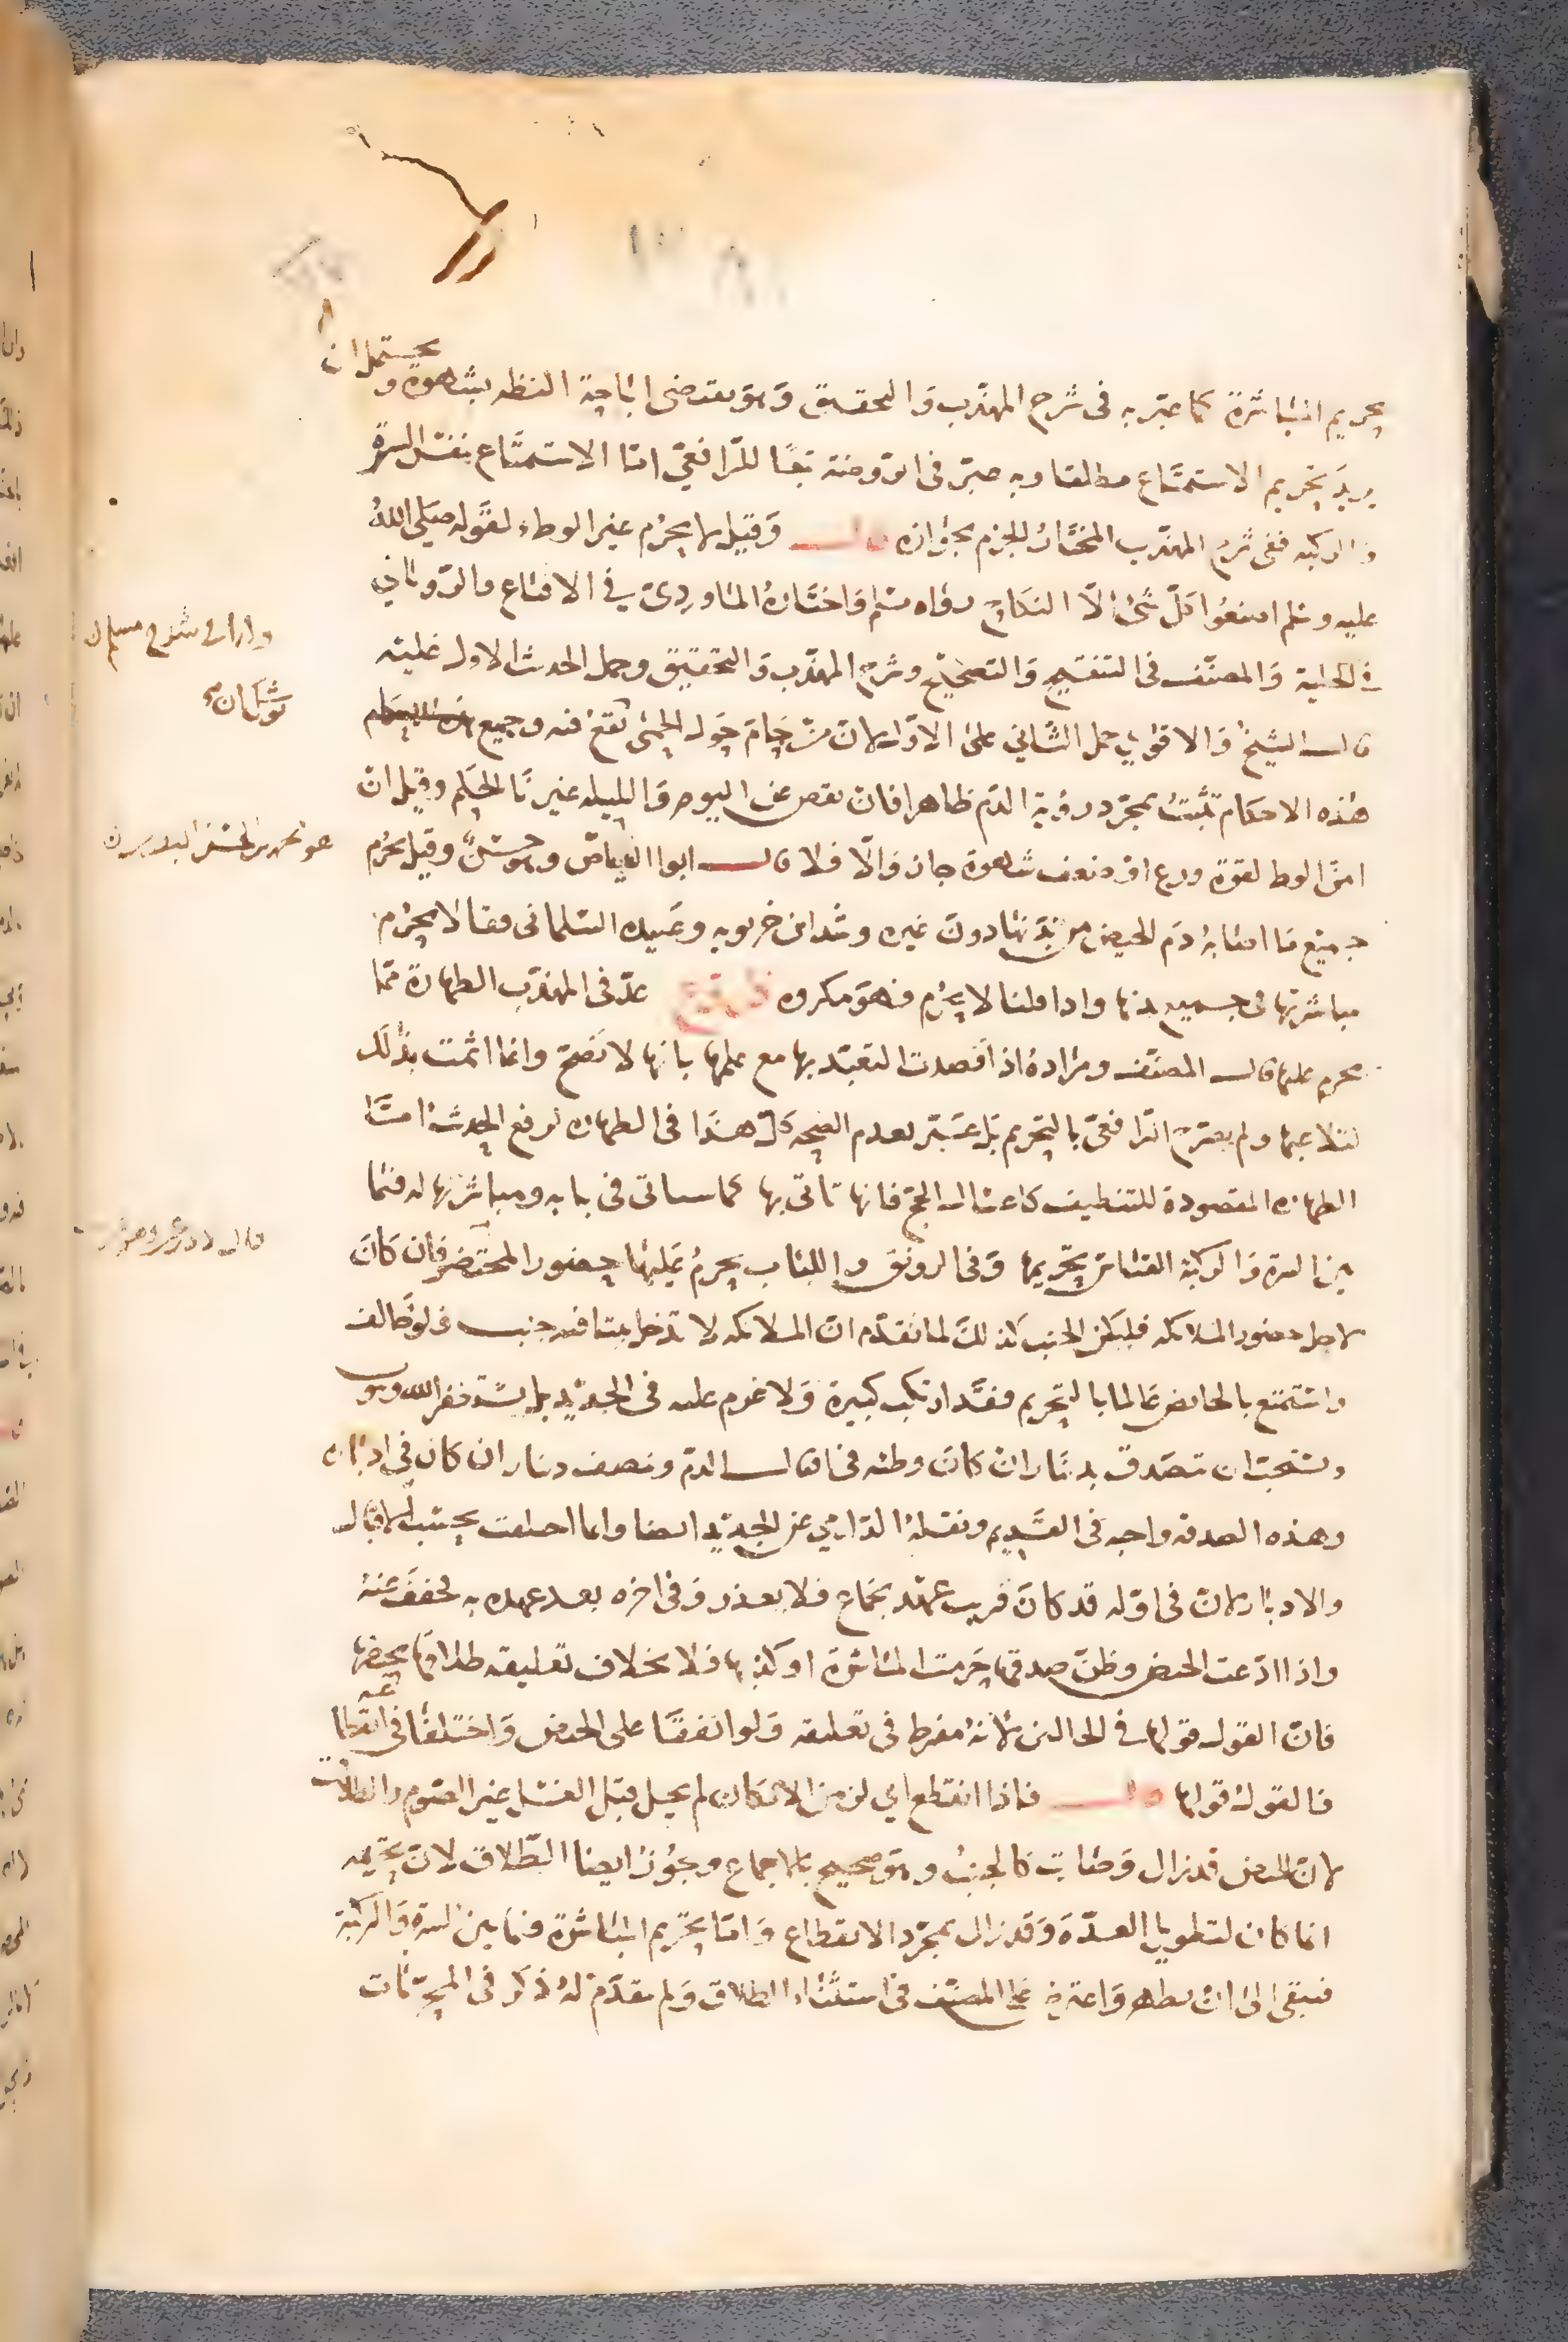 تحريم المباشرة كما عبّر به في شرح المهذّب والتحقيق وهو يقتضى اباحة النظر بشهوة و يحتمل ان
يريد تحريم الاستمتاع مطلقا وبه عبّر في الروضة تبعًا للرافعي امّا الاستمتاع بنفس السرة
والركبه ففى شرح المهذب المختار الجزم بجوازه قال وَقيل لا يحرُم غير الوطء لقوله صَلى اللهُ
عليه وسلم اصنعُوا كلّ شئ الاّ النكاح رواه مسلم وَاختارهُ الماوردي في الاقناع والرّوياني
في الحلية وَالمصنّف فى التنقيح وَالتصحيح وشرح المهذّب وَالتحقيق وحمل الحديث الاول عليه
قال الشيخ وَالاقوى حمل الثاني على الاوّل لان من حَامَ حَول الحمى يقع فيه وجميع
هٰذه الاحكام تثبتُ بمجرّد رؤية الدّم ظاهرا فان نقص عن اليوم وَالليله غيرنا الحكم وقيل ان
امن الوطء لقوة ورع او ضعف شهوة جاز وَالّا فلا قال ابوا الفياض وهو حسَنٌ وقيل يحرُم
جميع ما اصابهُ دَم الحيض من بَدَنها دون غيره وشذ ابن خربويه وعَبيده السّلمانى فقالا يحرُم
مباشرتها في جميع بدنها واذا قلنا لا يحرم فهو مكروه فرع عدّ في المهذب الطهارة ممّا
يحرم عليها قال المصنّف ومرادهُ اذا قصدت التعبّد بها مع علمها بانها لا تصحّ وانما اثمت بذلك
لتلاعبها ولم يصرّح الرّافعى بالتحريم بل عَبّر بعدم الصحه كل هذا في الطهاره لرفع الحدث امّا
الطهاره المقصودة للتنظيف كاغسال الحجّ فانها تاتى بها كما سياتى في بابه ومباشرتها له فيما
بين السرة وَالركبة القياس تحريمها وَفى الرونق واللباب يحرمُ عَليها حضور المحتضر فان كَانَ
لاجل حضور الملائكه فليكن الجنب كذلك لما تقدّم انّ الملائكه لا تدخل بيتا فيه جنب فلو خالف
واستمتع بالحائض عَالما بالتحريم فقد ارتكب كبيرة وَلا غرم عليه في الجديد بل يستغفر الله ويتوب
ويستحبّ ان يتصَدق بدينار ان كانَ وطئه في اقبال الدّم ونصف دينار ان كان في ادباره
وهذه الصدقه واجبه في القديم ونقلهُ الدّارمي عن الجديد ايضا وانما اختلفت بحسَب الاقبال
والادبار لان في اوّله قد كانَ قريب عهد بجماع فلا يعذر وَفى اخره بعد عهده به فخففَ عَنه
واذا ادّعت الحيض وظنّ صدقها حَرمت المباشرة او كذبها فلا بخلاف تعليقه طلاقها بحيضها
فانّ القول قولها في الحالين لانهُ مفرط في تعليقه وَلو اتفقَا على الحيض وَاختلفا في انقطاعه
فالقولُ قولها قال فاذا انقطع اي لزمن الامكان لم يحل قبل الغسل غير الصوم والطلاق
لان الحيض قد زال وَصَارت كالجنب وهو صحيح بالاجماع ويجُوز ايضا الطّلاق لان تحريمه
انما كان لتطويل العدّة وَقد زال بمجرّد الانقطاع وَامّا تحريم المباشرة فيما بين السرة وَالركبة
فيبقى الى ان تطهر وَاعترض على المصنّف فى استثناء الطلاق وَلم يتقدّم لهُ ذكر فى المحرّمات